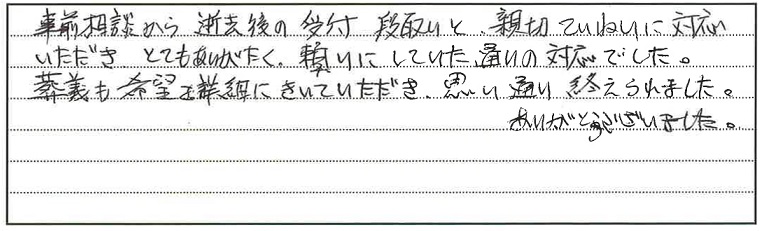 事前相談から逝去後の受付 段取りと、親切ていねいに対応
いただき とてもありがたく、頼りにしていた通りの対応でした。
葬義も希望を詳細にきいていただき、思い通り終えられました。
ありがとうございました。